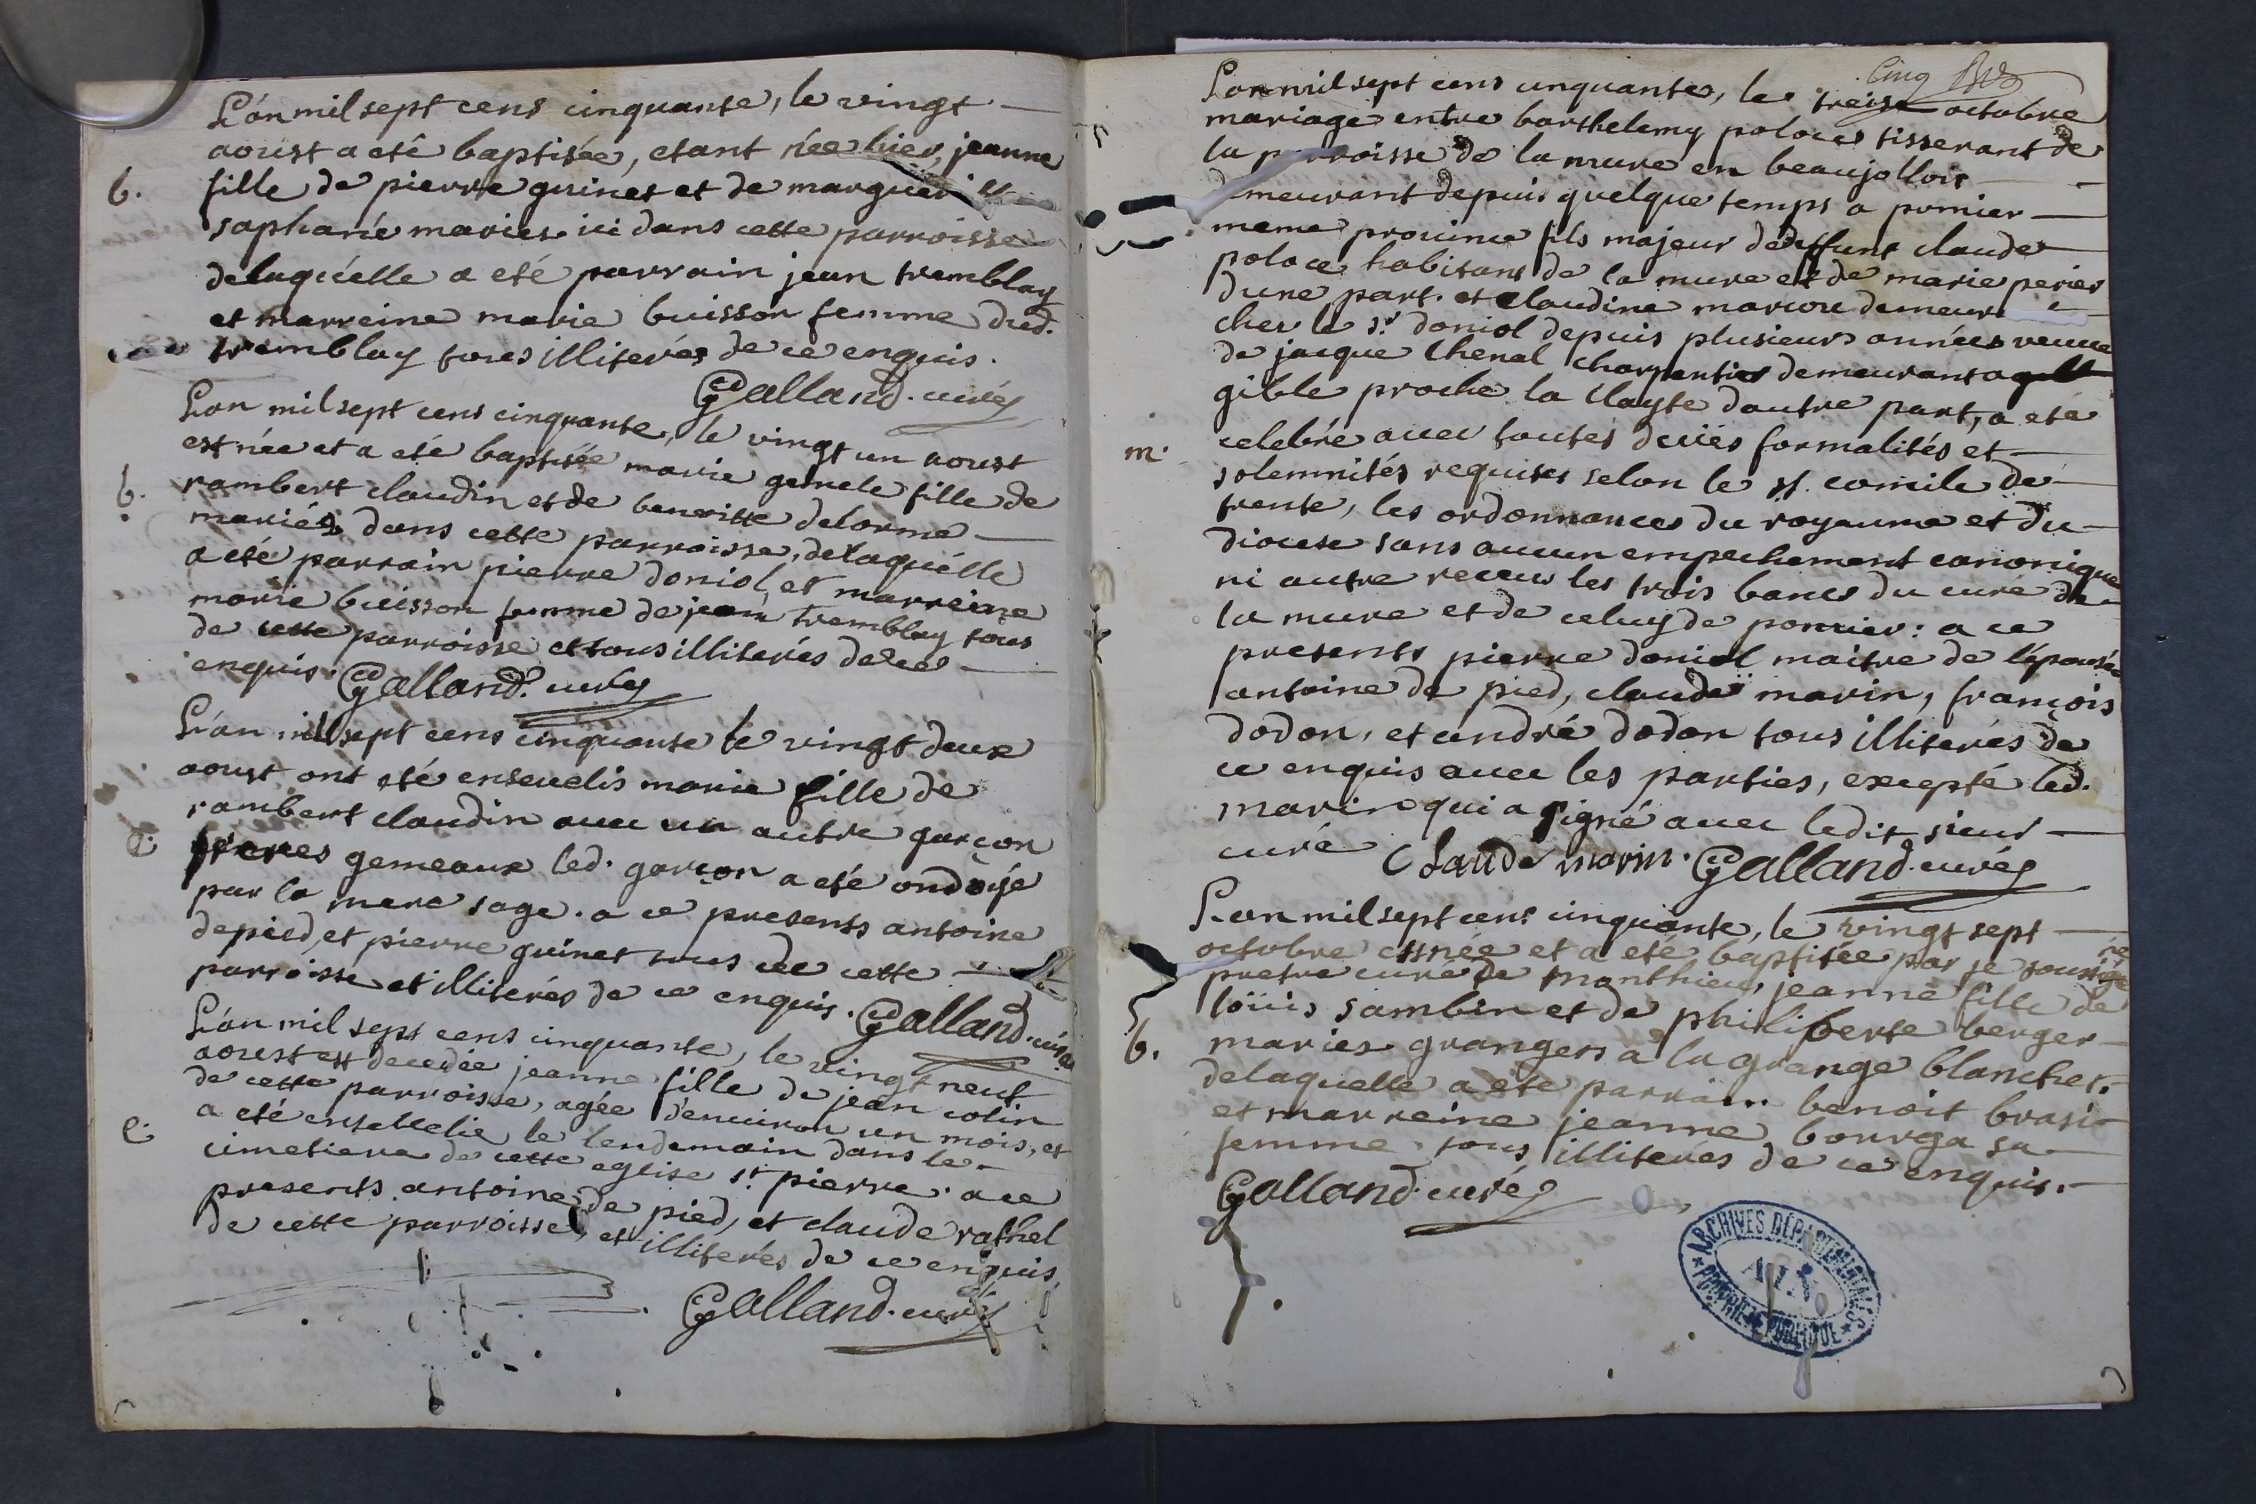 L'an mil sept cens cinquante, le vingt
aoust a eté baptisée, etant née hier, jeanne
b. fille de pierre guinet et de marguerite
saphané mariés ici dans cette parroisse
delaquélle a eté parrain jean tremblay
et marreine marie buisson femme dud.
tremblay tous illiterés de ce enquis.
Galland. curé
L'an mil sept cens cinquante, le vingt un aoust
est née et a eté baptisée marie gemele fille de
b. rambert claudin et de benoitte delorme
mariés dans cette parroisse, delaquélle
a eté parrain pierre doniol, et marreine
marie buisson femme de jean tremblay tous
de cette parroisse et tous illiterés de ce
enquis. Galland. curé
L'an mil sept cens cinquante le vingt deux
aoust ont eté ensevelis marie fille de
rambert claudin avec un autre garçon
e. freres gemeaux led. garçon a eté ondoyé
par la mere sage. a ce presents antoine
depied, et pierre guinet tous de cette
parroisse et illiterés de ce enquis. Galland. curé
L'an mil sept cens cinquante, le vingt neuf
aoust est decedée jeanne fille de jean colin
de cette parroisse, agée d'environ un mois, et
e. a eté ensevelie le lendemain dans le
cimetiere de cette eglise st pierre. a ce
presents antoine de pied, et claude rathel
de cette parroisse, et illiterés de ce enquis,
Galland. curé
Cinq
L'an mil sept cens cinquante, le treize octobre
mariage entre barthelemy poloce tisserant de
la parroisse de la mure en beaujollois
demeurant depuis quelque temps a pomier
meme province fils majeur de deffunt claude
poloce habitant de la mure et de marie perier
dune part. et claudine marcou demeurant
chez le sr. doniol depuis plusieurs années veuve
de jacque Chenal charpentier demeurant a
gible proche la Clayte dautre part, a eté
m. celebré avec toutes deües formalités et
solemnités requises selon le st. concile de
trente, les ordonnances du royaume et du
diocese sans aucun empechement canonique
ni autre receus les trois bancs du curé de
la mure et de celuy de pomier: a ce
presents pierre doniol maitre de l'épousée
antoine de pied, claude marin, françois
dodon, et andré dodon tous illiterés de
ce enquis avec les parties, excepté led.
marin qui a signé avec ledit sieur
curé Claude morin. Galland. curé
L'an mil sept cens cinquante, le vingt sept
octobre est née et a eté baptisée par je soussigné
pretre curé de monthieu, jeanne fille de
loüis sambin et de philiberte berger
b. mariés grangers a la grange blanche.
delaquelle a eté parrain benoit brasi
et marreine jeanne bourga sa
femme. tous illiterés de ce enquis.
Galland. curé
ARCHIVES DÉPARTEMENTALES
PROPRIÉTÉ PUBLIQUE